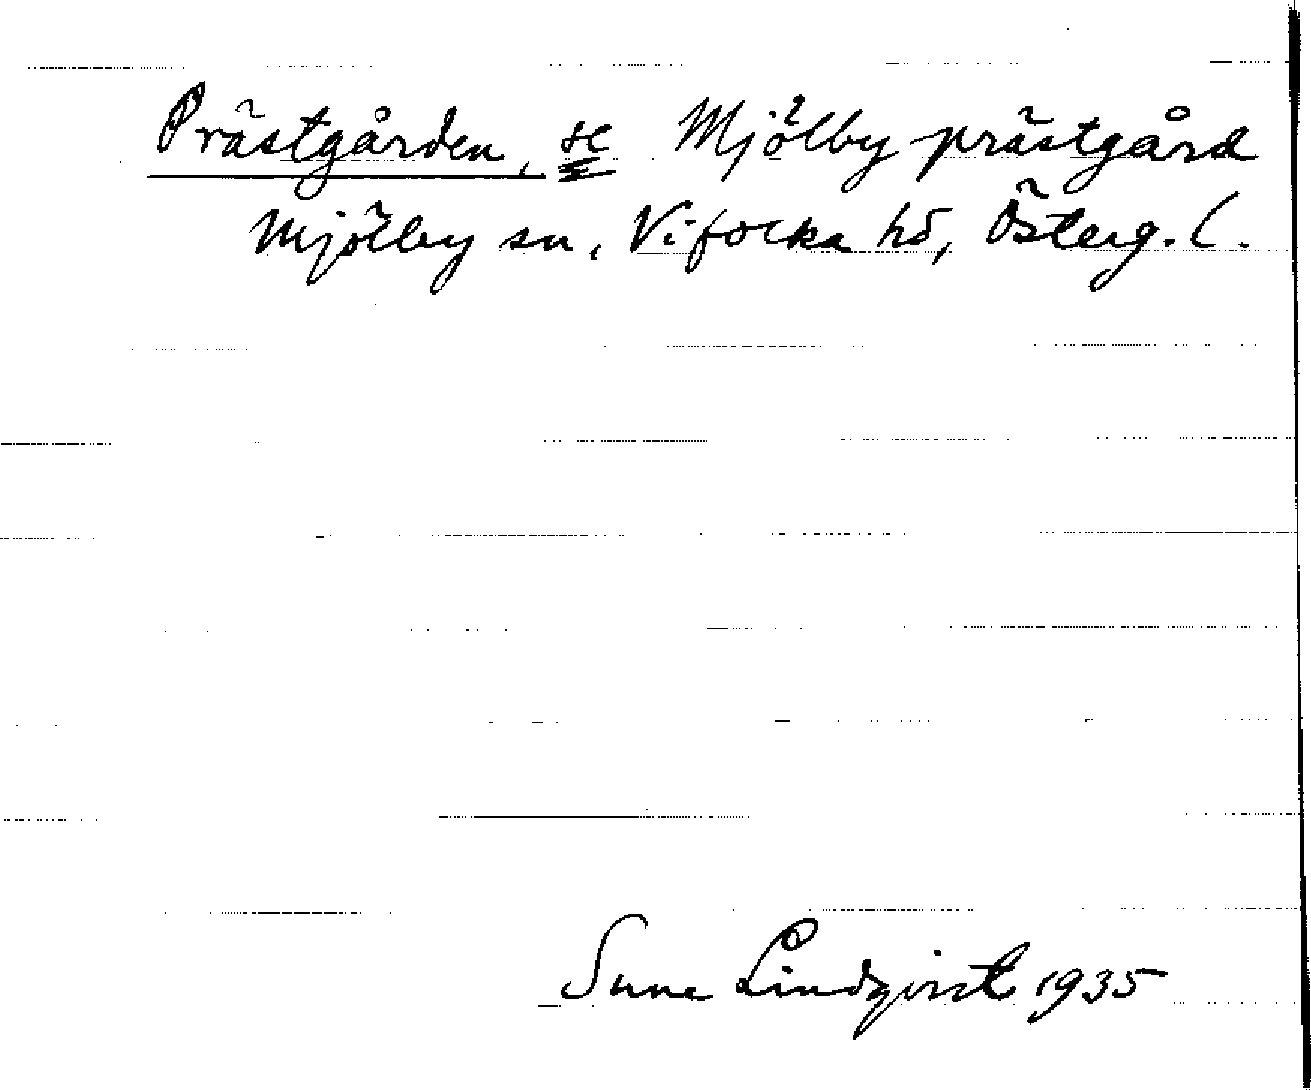 Prästgården, se Mjölby prästgård
Mjölby sn, Vifolka hd, Österg. l.
Sune Lindqvist 1935